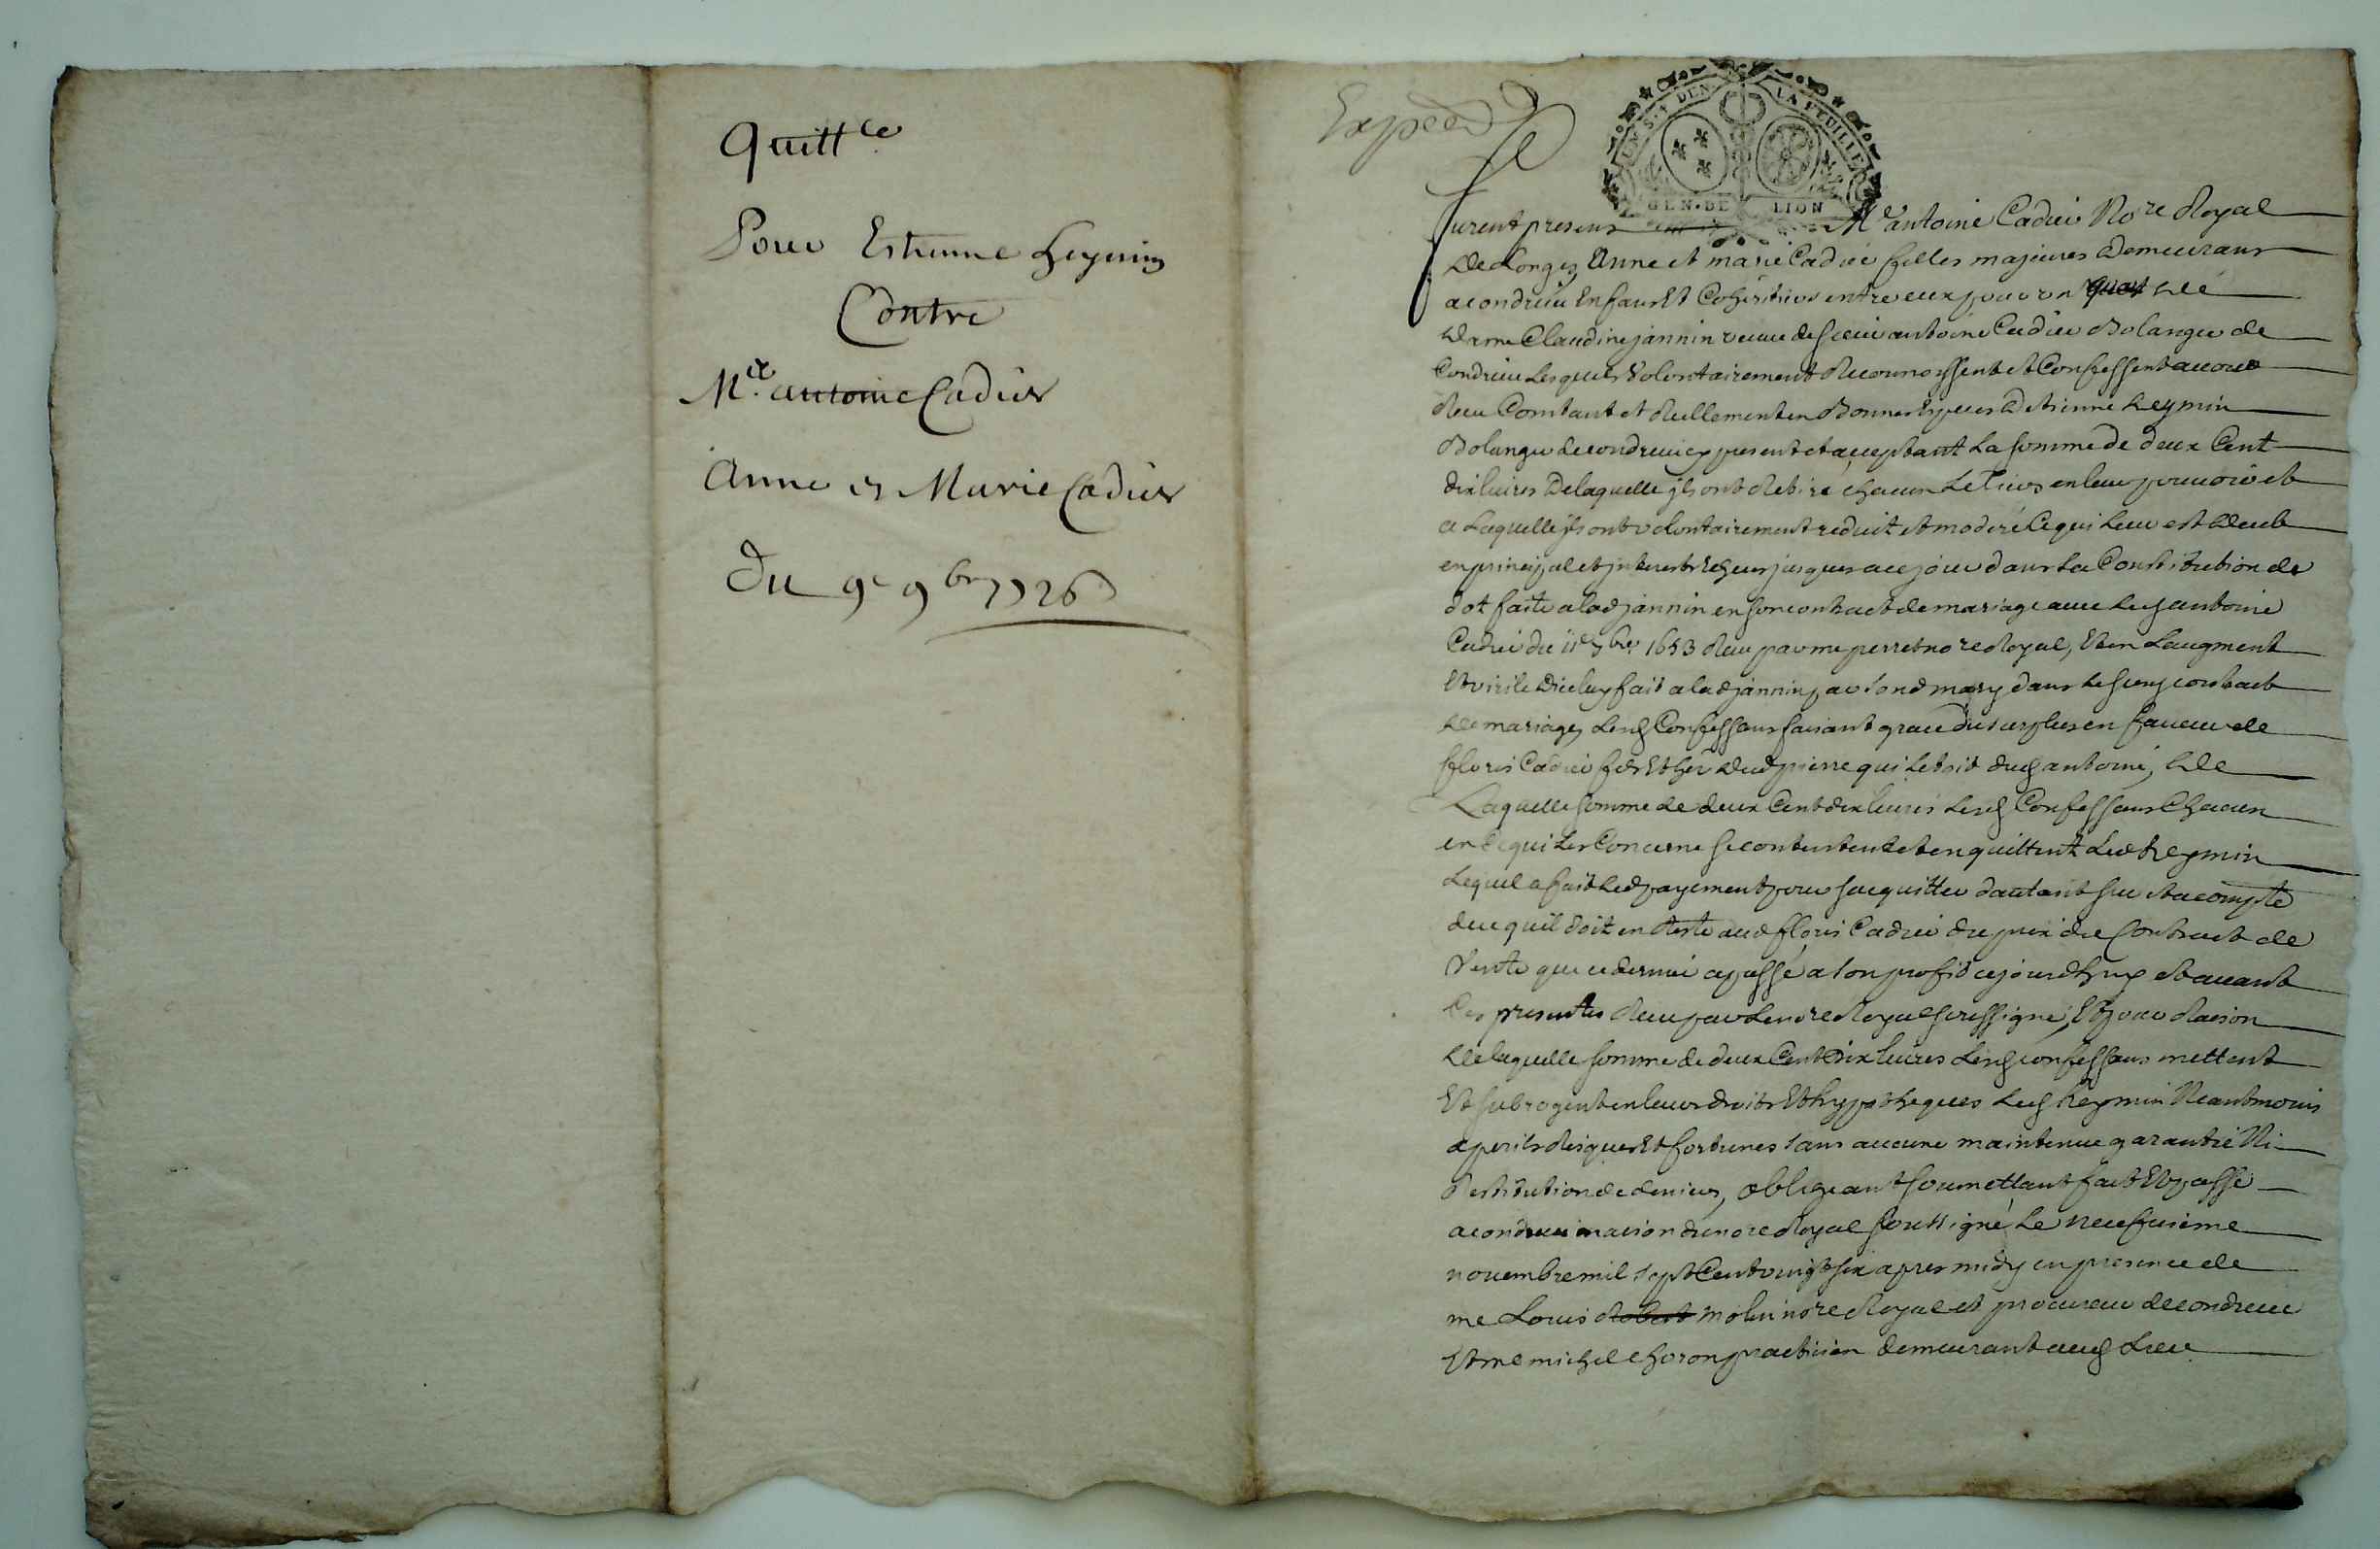 Quitt.ce
Pour Estienne Heymin
Contre
M.e antoine Cadier
Anne et Marie Cadier
Du 9e 9bre 1726
Exped
UN S. 4 DEN LA FEUILLE
GEN. DE LION
furent presens Me antoine Cadier No.re Royal
de Longes, Anne et marie Cadier filles majeures demeurans
a condrieu Enfans Et Coheritiers entre eux pour un quart de
dame Claudine jannin veuve de sieur antoine Cadier Bolanger de
Condrieu Lesquels Volontairement Reconnoissent et Confessent avoir
Receu Comtant et Reellement en Bonnes Especes d'etienne heymin
Bolanger de condrieu cy present et acceptant La somme de deux Cent
dix livres De laquelle jls ont Retiré chacun Le Tiers en leur pouvoir et
a Laquelle jls ont volontairement reduit et moderé Ce qui Leur est deub
en principal et jnterests Echeus jusques a ce jour dans La Constitution de
dot faite a lad jannin en son contract de mariage avec led antoine
Cadier du 11e 7bre 1653 Receu par me perret no.re Royal, Et en Laugment
Et virile Dicelluy fait a lad jannin par sond mary dans Le susd contract
de mariage, Lesd Confessans faisant grace du surplus en faveur de
floris Cadier fils Et her dud pierre qui Letoit dud antoine, de
Laquelle somme de deux Cent dix livres Lesd Confessans Chacun
en Ce qui Les Concerne se contentent et en quittent Led heymin
Lequel a fait Led payement pour sacquitter dautant sur et a compte
de ce quil doit en Reste aud floris Cadier du prix du Contract de
Vente que ce dernier a passé a son profit cejourdhuy et avant
Ces presentes Receu par Le no.re Royal soussigné, Et pour Raison
de laquelle somme de deux Cent Dix livres Lesd confessans mettent
Et subrogent en leurs droits Et hypotheques Led heymin Neantmoins
a perils Risques Et fortunes sans aucune maintenue garantie Ni
Restitution de deniers, obligeant soumettant fait Et passé
a condrieu maison du no.re Royal soussigné Le neufvieme
novembre mil sept Cent vingt six apres midy en presence de
me Louis Robert molin no.re Royal et procureur de condrieu
Et me michel choron practicien demeurant aud Lieu